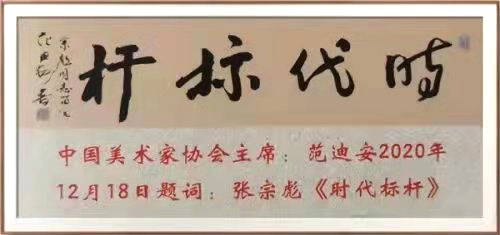 時代标杆
宗彪同志
范迪安書
中国美术家协会主席：范迪安2020年
12月18日题词：张宗彪《时代标杆》